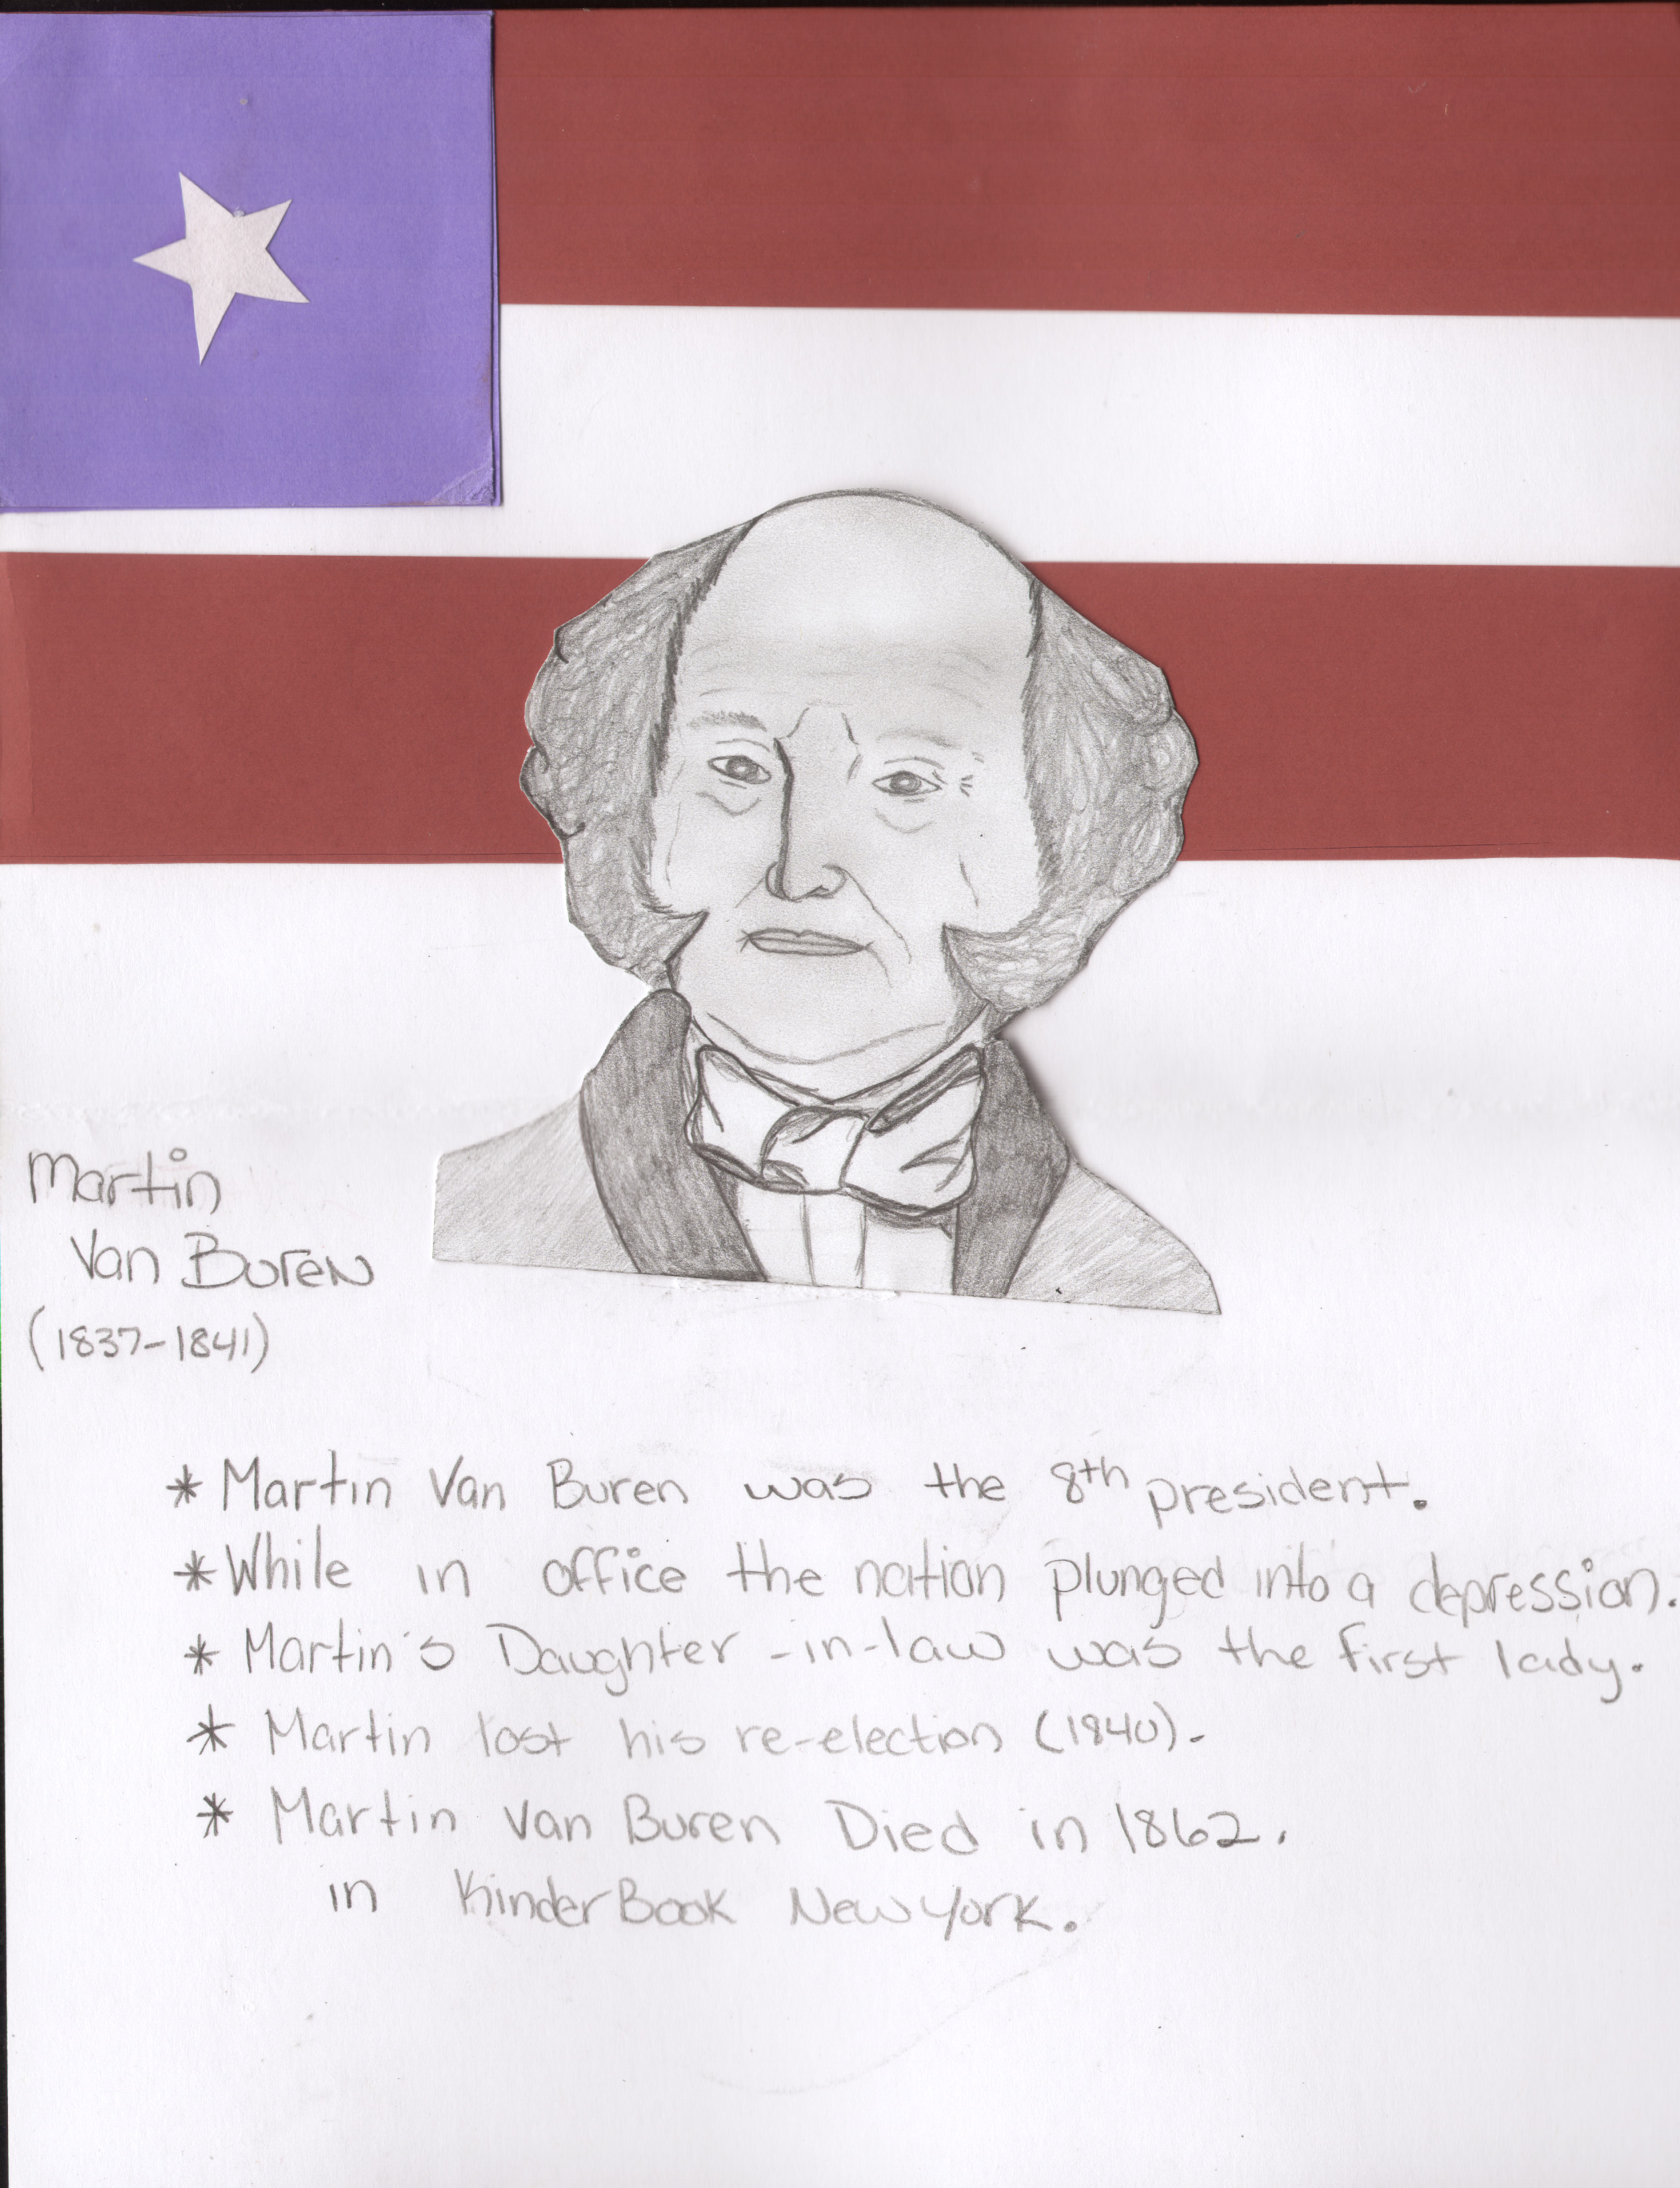 Martin
Van Buren
(1837-1841)
* Martin Van Buren was the 8th president.
* While in office the nation plunged into a depression.
* Martin's Daughter-in-law was the first lady.
* Martin lost his re-election (1840).
* Martin Van Buren Died in 1862.
in KinderBook New York.